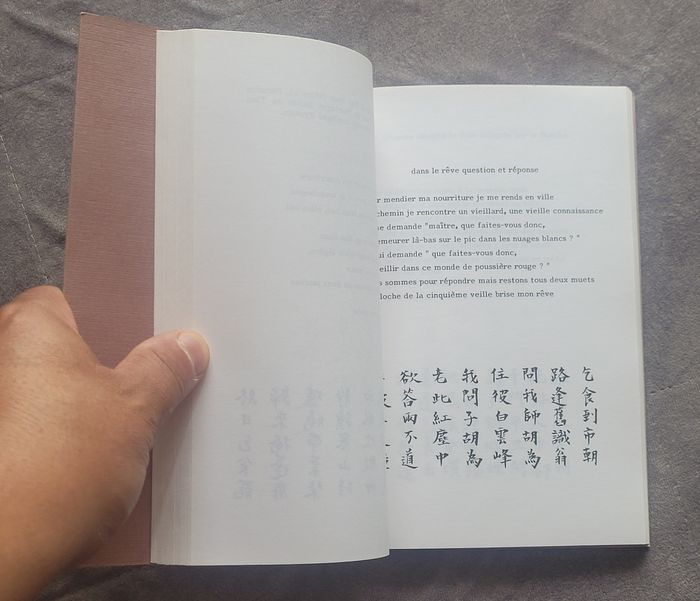 dans le rêve question et réponse
r mendier ma nourriture je me rends en ville
chemin je rencontre un vieillard, une vieille connaissance
e demande "maître, que faites-vous donc,
emeurer là-bas sur le pic dans les nuages blancs ? "
ui demande " que faites-vous donc,
eillir dans ce monde de poussière rouge ? "
s sommes pour répondre mais restons tous deux muets
loche de la cinquième veille brise mon rêve
乞食到市朝
路逢舊識翁
問我師胡為
住彼白雲峰
我問子胡為
老此紅塵中
欲荅兩不道